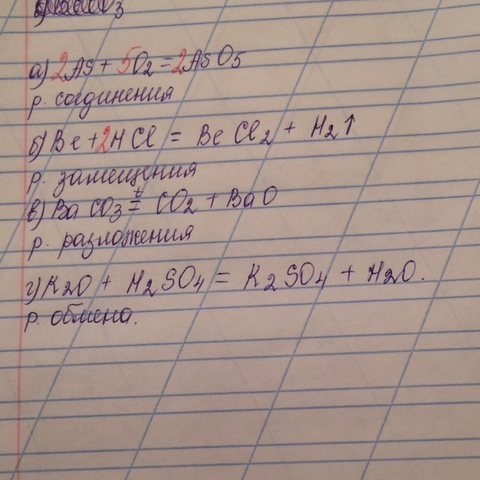 а) 2As + 5O2 = 2AsO5
р. соединения
б) Be + 2HCl = BeCl2 + H2↑
р. замещения
в) BaCO3 t= CO2 + BaO
р. разложения
г) K2O + H2SO4 = K2SO4 + H2O.
р. обмена.